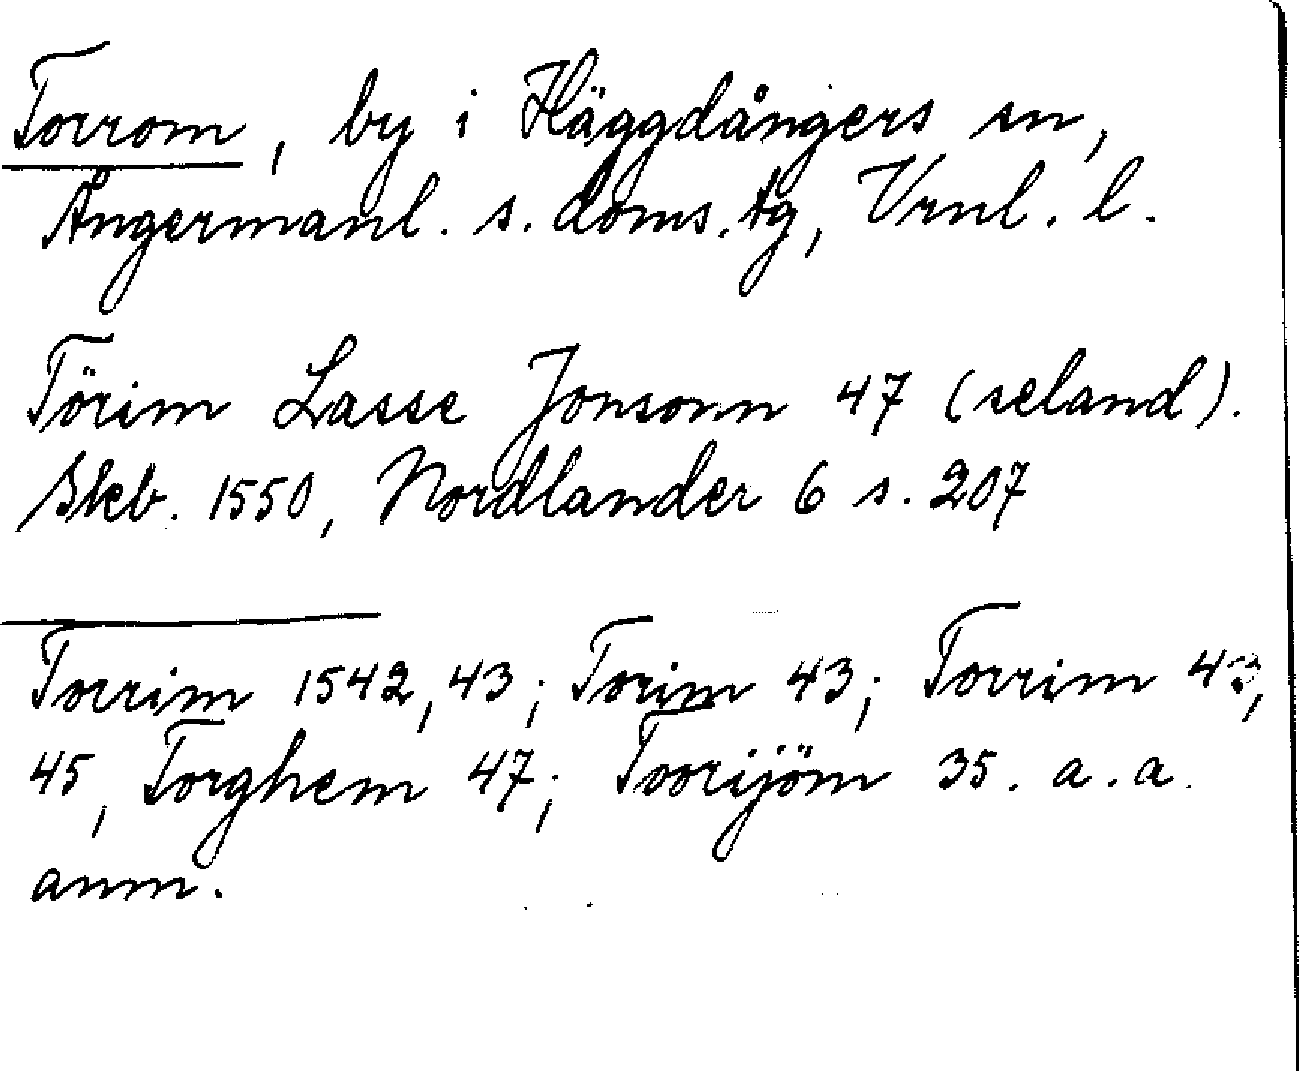 Torrom, by i Häggdångers sn,
Ångermanl. s. doms. tg, Vrnl. l.
Törim Lasse Jonsonn 47 (seland).
Skb. 1550, Nordlander 6 s. 207
Torrim 1542, 43; Torim 43; Torrim 43,
45, Torghem 47; Toorijöm 35. a. a.
anm.